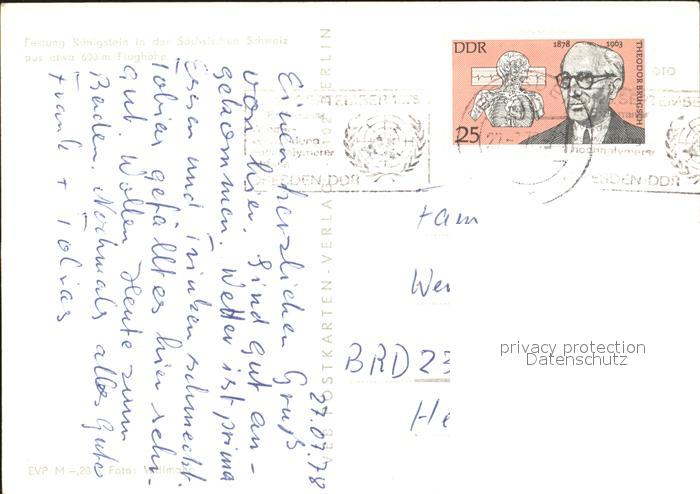 Festung Königstein in der Sächsischen Schweiz
aus etwa 600 m Flughöhe
27.07.78
Einen herzlichen Gruß
von hier. Sind gut an-
gekommen. Wetter ist prima
Essen und Trinken schmeckt.
Tobias gefällt es hier sehr
gut. Wollen Heute zum
Baden. Nochmals alles Gute
Frank + Tobias
EVP M -,20 Foto:
POSTKARTEN-VERLAG BERLIN
DDR 1878 1963
THEODOR BRUGSCH
25
DRESDEN-DDR
DRESDEN-DDR
Fam
Wer
BRD 23
He
privacy protection
Datenschutz